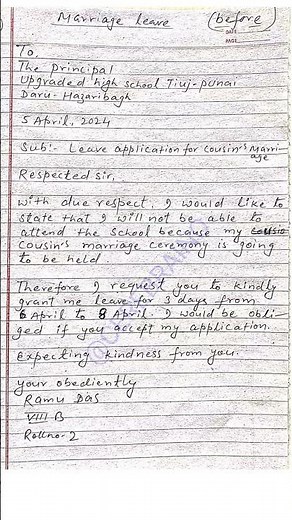 Marriage Leave (before)
DATE
PAGE
To,
The Principal
Upgraded high school Tiuj-punai
Daru-Hazaribagh
5 April, 2024
Sub:- Leave application for Cousin's Marri-
age
Respected Sir,
With due respect, I would like to
state that I will not be able to
attend the School because my
Cousin's marriage ceremony is going
to be held.
Therefore I request you to kindly
grant me leave for 3 days from
6 April to 8 April. I would be obli-
ged if you accept my application.
Expecting kindness from you.
your obediently
Ramu Das
VIII-B
Rollno-2